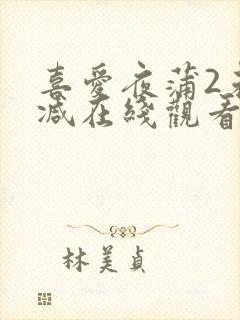 喜愛夜蒲2
減在綫觀看
林美貞